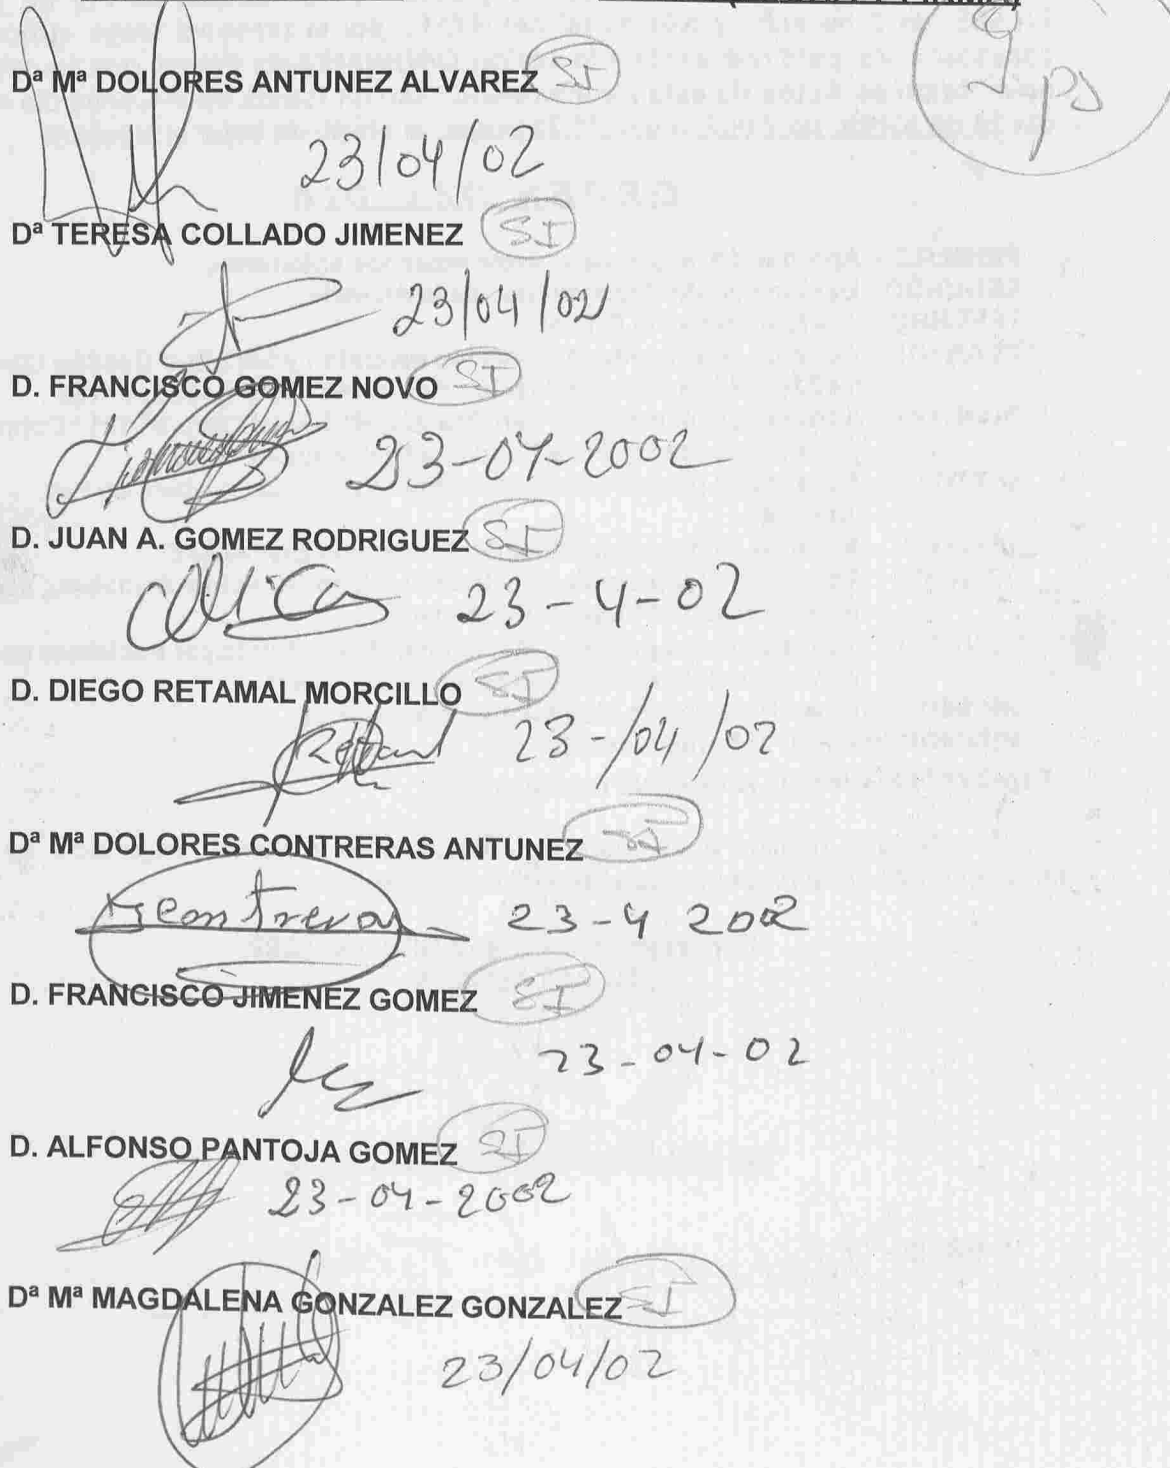 Dª Mª DOLORES ANTUNEZ ALVAREZ SI
23/04/02
Dª TERESA COLLADO JIMENEZ SI
23/04/02
D. FRANCISCO GOMEZ NOVO SI
23-04-2002
D. JUAN A. GOMEZ RODRIGUEZ SI
23-4-02
D. DIEGO RETAMAL MORCILLO SI
23-/04/02
Dª Mª DOLORES CONTRERAS ANTUNEZ SI
Contreras 23-4 2002
D. FRANCISCO JIMENEZ GOMEZ SI
23-04-02
D. ALFONSO PANTOJA GOMEZ SI
23-04-2002
Dª Mª MAGDALENA GONZALEZ GONZALEZ SI
23/04/02